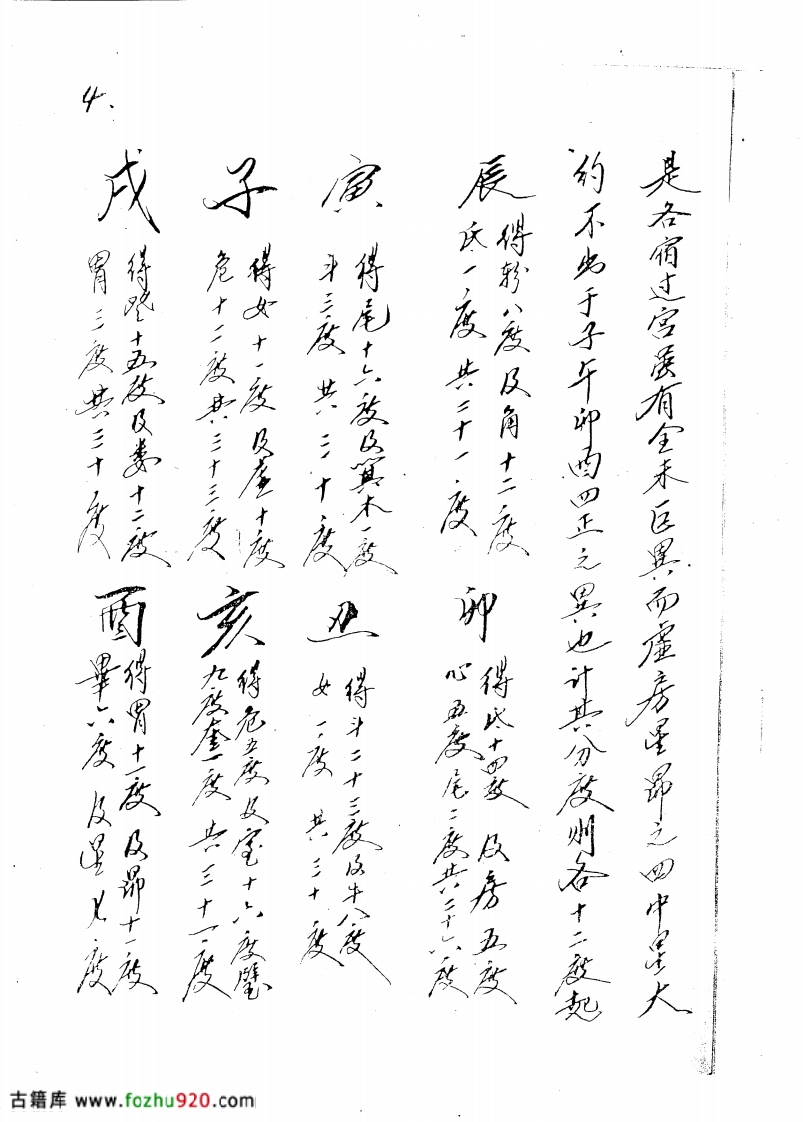 是各宿过宫虽有全未巨異而虛房星昴之四中星大
约不出于子午卯酉四正之異也计其分度则各十二度起
辰 得轸八度及角十二度
氐一度共二十一度
卯 得氐十四度及房五度
心五度尾二度共二十六度
寅 得尾十六度及箕木一度
斗三度共二十度
丑 得斗二十三度及牛八度
女一度共三十度
子 得女十一度及虚十度
危十二度共三十三度
亥 得危五度及室十六度璧
九度奎一度共三十一度
戌 得奎十五度及娄十二度
胃三度共三十度
酉 得胃十一度及昴十一度
畢六度及
4.
古籍库 www.fozhu920.com